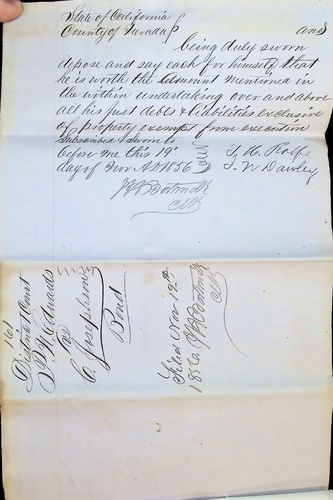 State of California
County of Nevada } and
being duly sworn
depose and say each for himself that
he is worth the amount mentioned in
the within undertaking over and above
all his just debts & liabilities exclusive
of property exempt from execution
Subscribed & sworn to
before me this 19th T. H. Rolfe
day of Nov AD 1856 T. W. Dawley
Clk
161
District Court
W. Edwards
vs
C. Josephson
Bond
Filed Nov 19th
1856
Clk